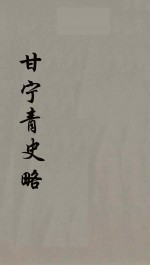 甘宁青史略